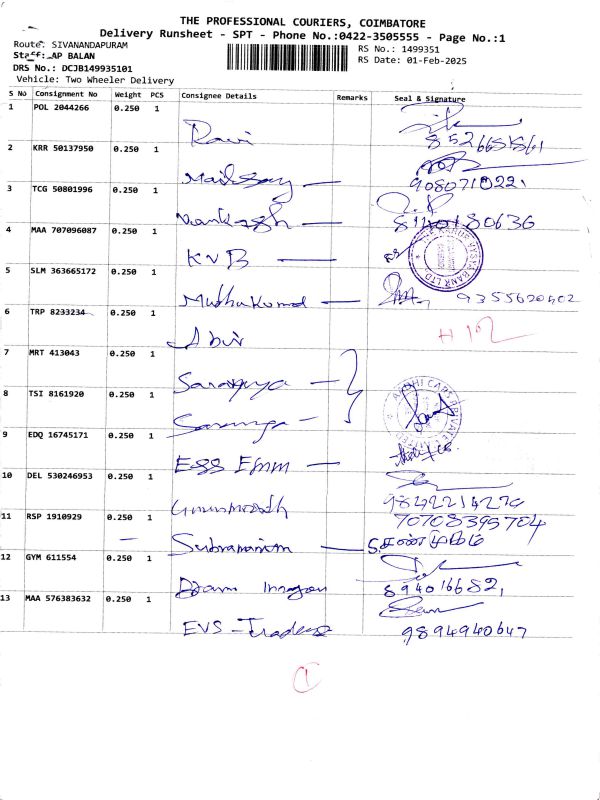 THE PROFESSIONAL COURIERS, COIMBATORE
Delivery Runsheet - SPT - Phone No.:0422-3505555 - Page No.:1
Route: SIVANANDAPURAM
Staff: AP BALAN
DRS No.: DCJB149935101
Vehicle: Two Wheeler Delivery
RS No.: 1499351
RS Date: 01-Feb-2025
S No Consignment No Weight PCS Consignee Details Remarks Seal & Signature
1 POL 2044266 0.250 1 Ravi
2 KRR 50137950 0.250 1
3 TCG 50801996 0.250 1
4 MAA 707096087 0.250 1 KVB
5 SLM 363665172 0.250 1 Muthukumar 9355620402
6 TRP 8233234 0.250 1
7 MRT 413043 0.250 1
8 TSI 8161920 0.250 1
9 EDQ 16745171 0.250 1 ESS Emm
10 DEL 530246953 0.250 1
11 RSP 1910929 0.250 1 Subramanium
12 GYM 611554 0.250 1
13 MAA 576383632 0.250 1 EVS - Traders 9894940647
1